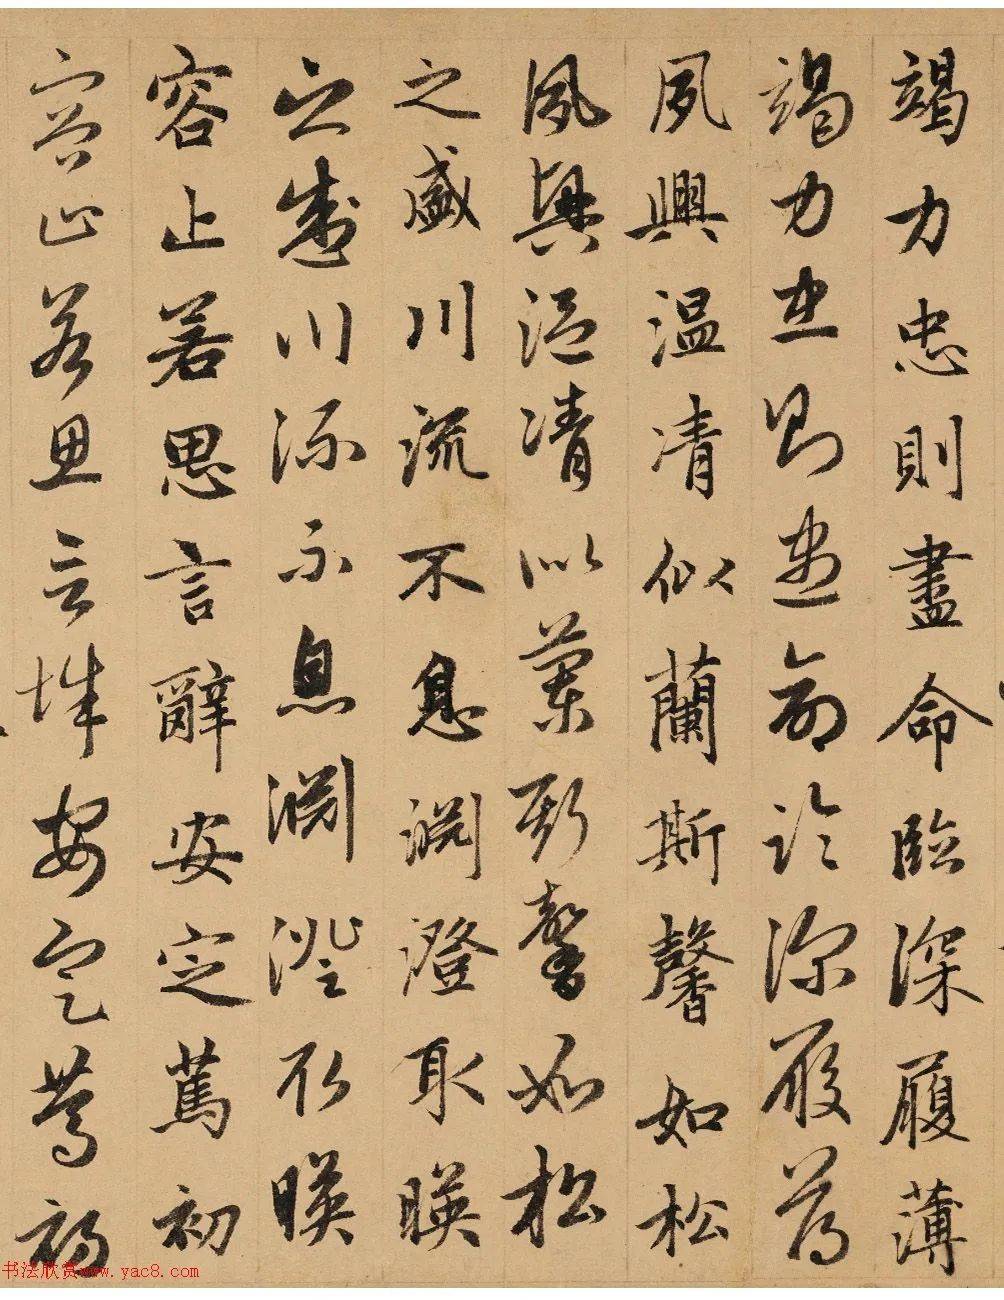 竭力忠則盡命臨深履薄
竭力忠則盡命臨深履薄
夙興温凊似蘭斯馨如松
夙興温凊似蘭斯馨如松
之盛川流不息淵澄取暎
之盛川流不息淵澄取暎
容止若思言辭安定篤初
容止若思言辭安定篤初
书法欣赏www.yac8.com